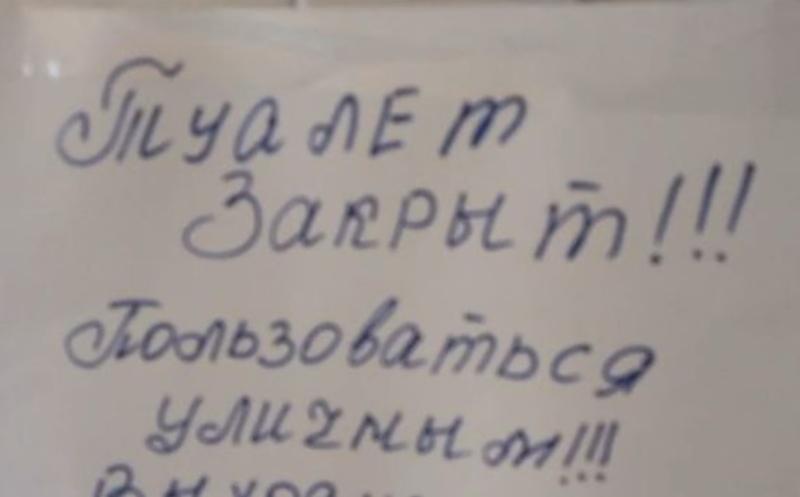 Туалет
Закрыт!!!
Пользоваться
уличным!!!